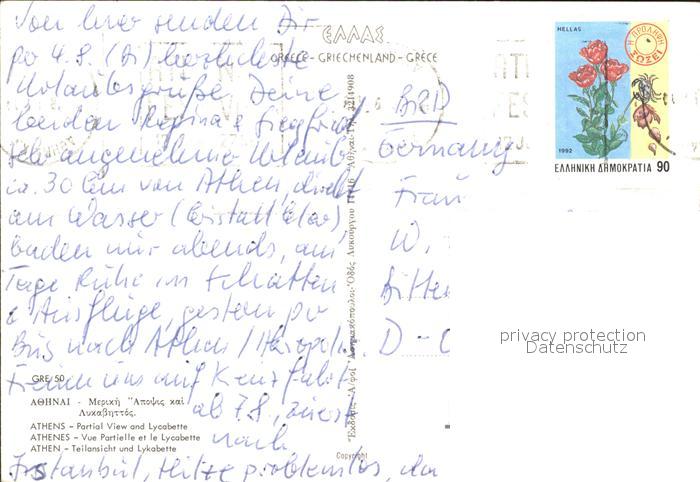 Von hier senden Dir
4.8. (Di) herzlichste
Urlaubsgrüße Deine
beiden Regina & Siegfried
sehr angenehmer Urlaub
ca. 30 km von Athen, direkt
am Wasser (kristallklar)
baden nur abends, am
Tage Ruhe im Schatten
& Ausflüge, gestern per
Bus nach Athen / Akropolis.
Freuen uns auf Kreuzfahrt
ab 7.8., zuerst
nach
Istanbul, Hitze problemlos, da
GRE/50
ΑΘΗΝΑΙ - Μερική Ἄποψις καί
Λυκαβηττός.
ATHENS - Partial View and Lycabette
ATHENES - Vue Partielle et le Lycabette
ATHEN - Teilansicht und Lykabette
ΕΛΛΑΣ
GREECE - GRIECHENLAND - GRÈCE
Copyright
BRD
Germany
Frau
W.
Bitte
D-
HELLAS
Η ΠΡΟΛΗΨΗ
ΣΩΖΕΙ
1992
ΕΛΛΗΝΙΚΗ ΔΗΜΟΚΡΑΤΙΑ 90
privacy protection
Datenschutz